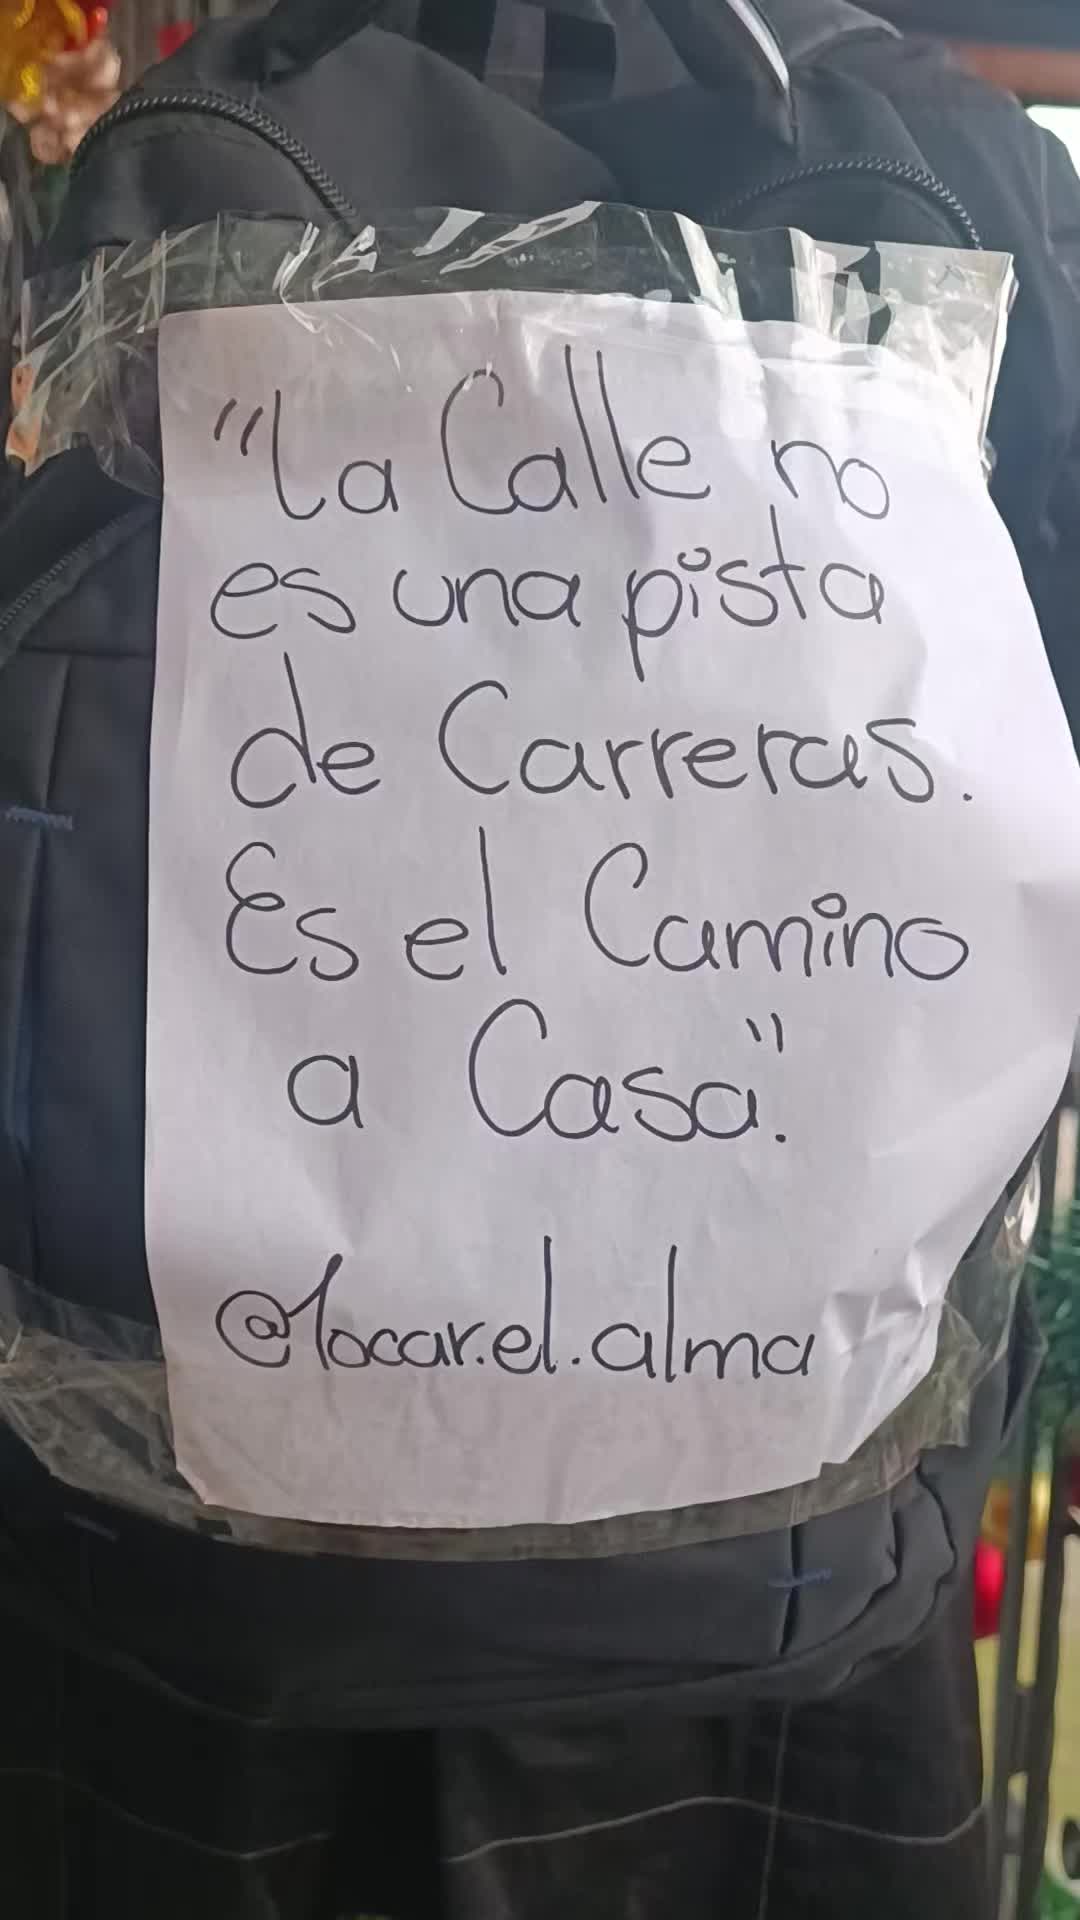 "La Calle no
es una pista
de Carreras.
Es el Camino
a Casa".
@tocar.el.alma